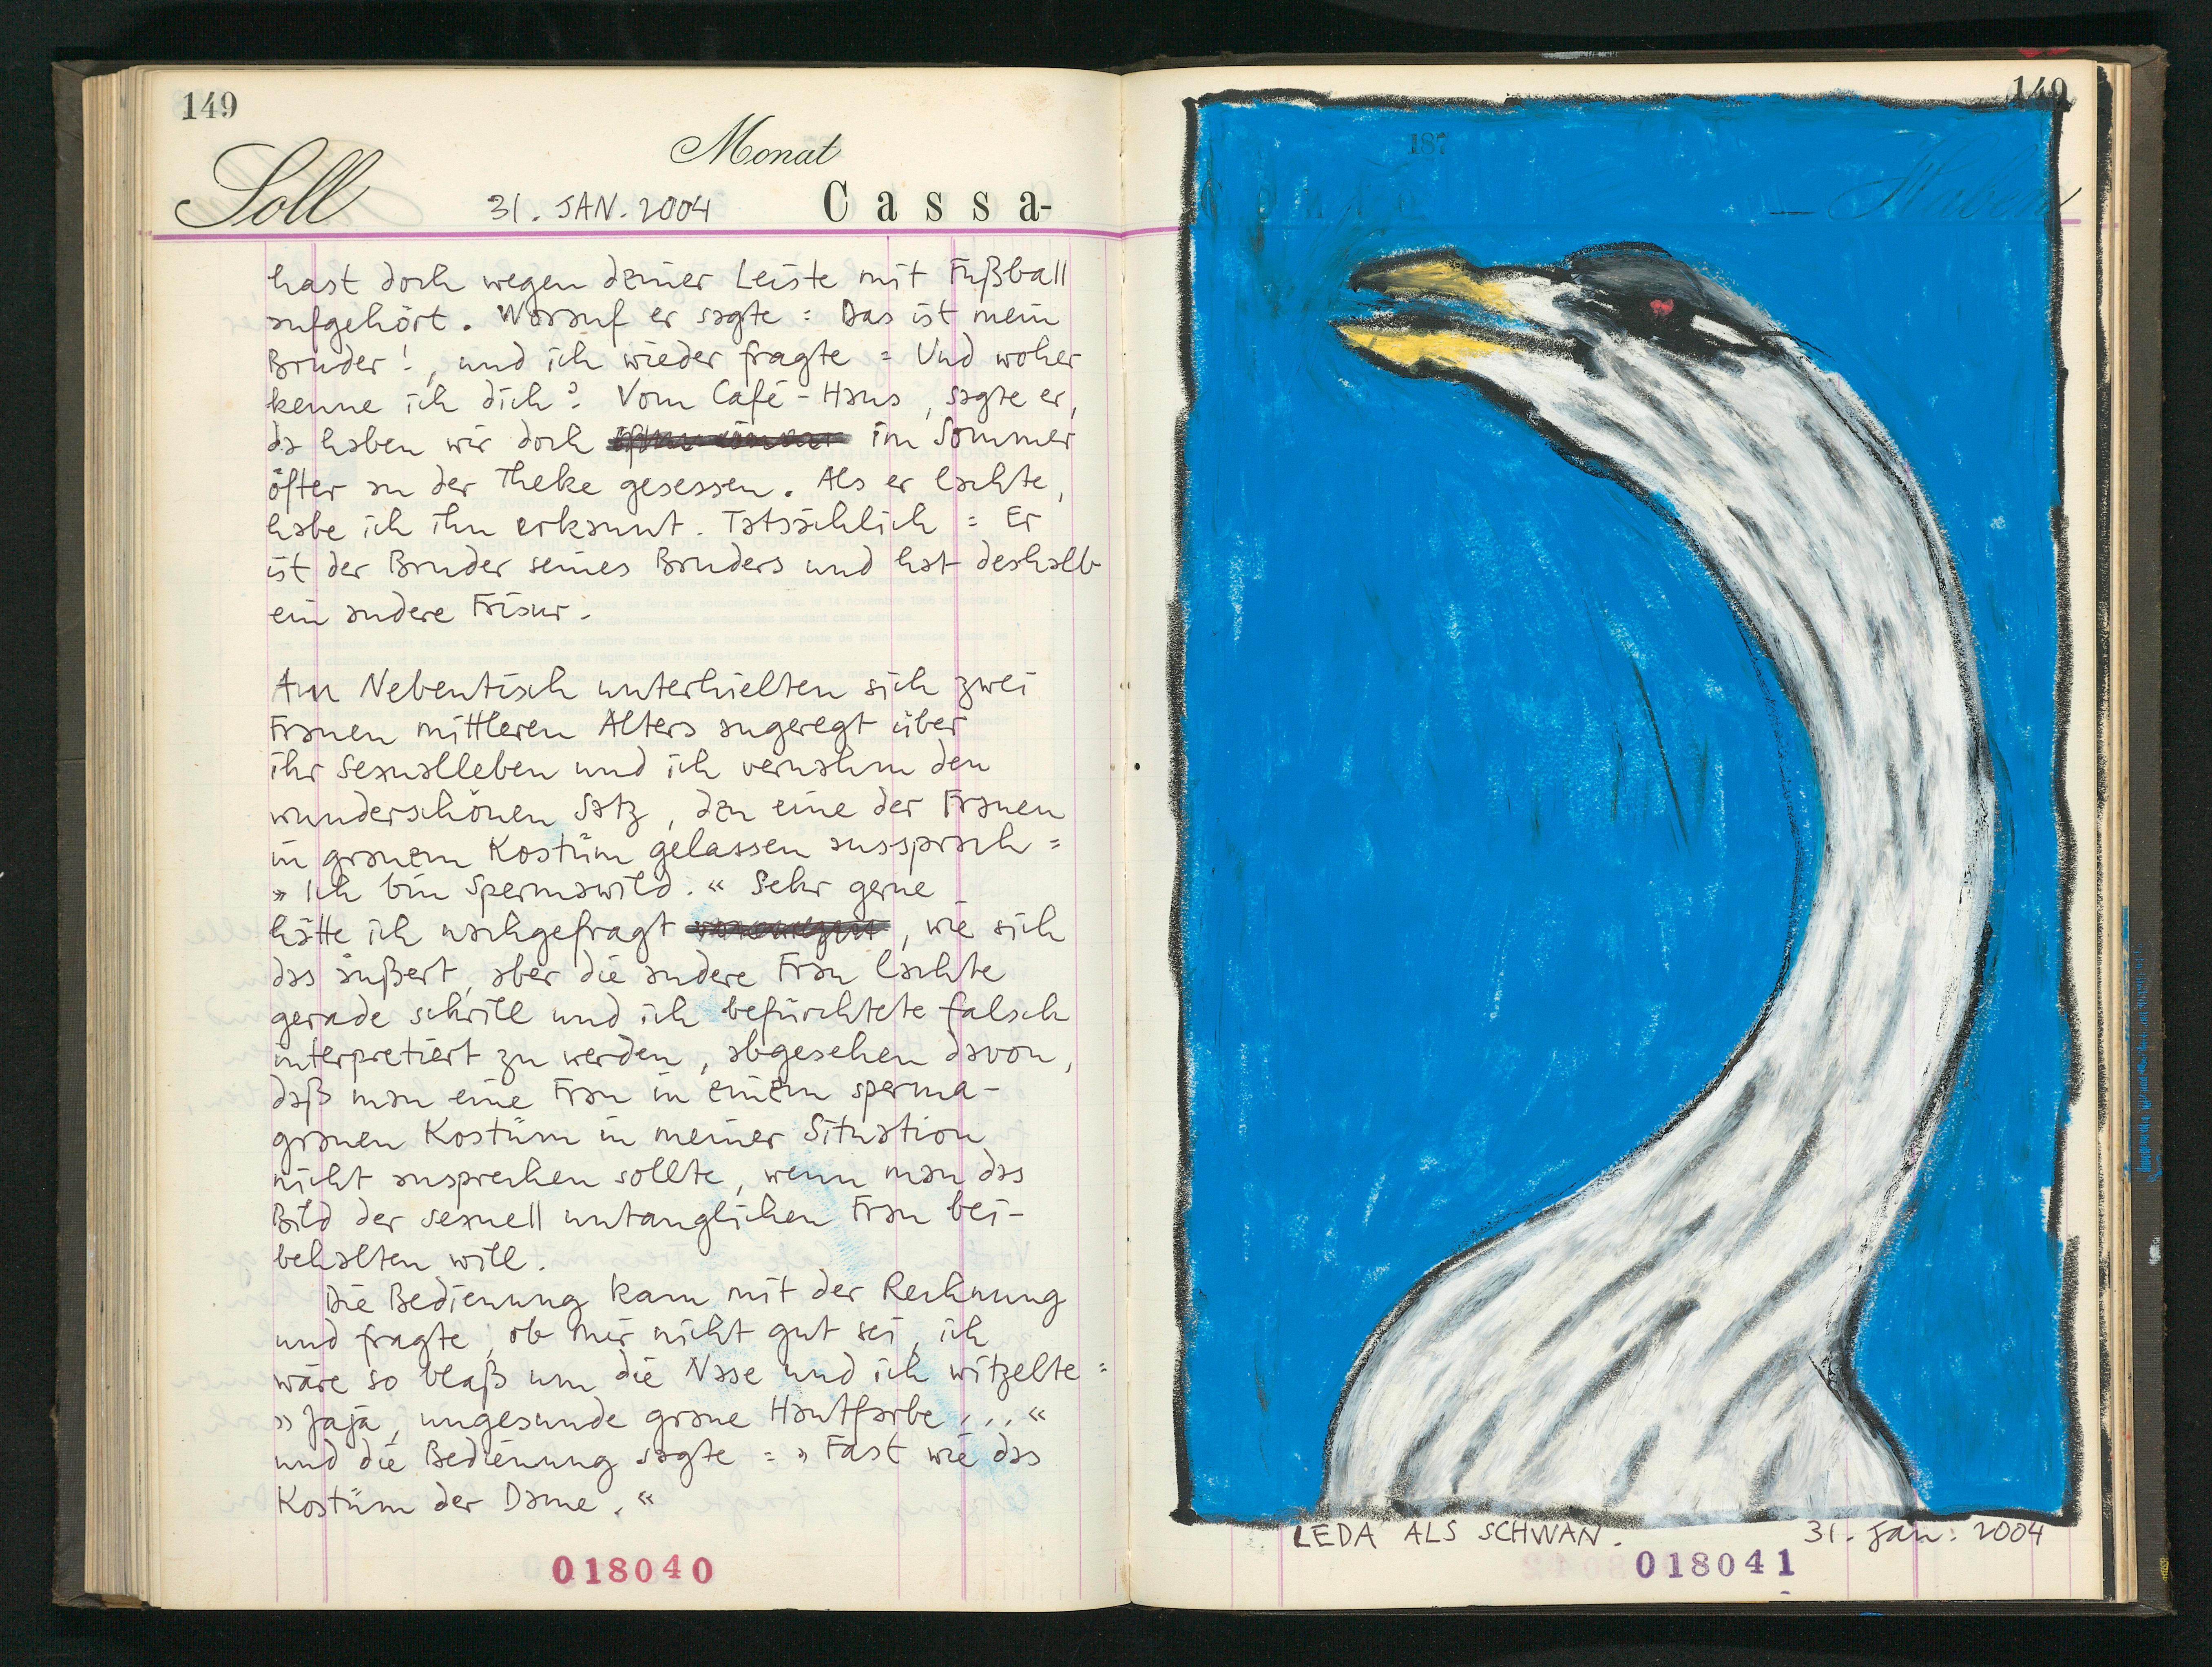 149
Monat
Soll 31. JAN. 2004 Cassa-
hast doch wegen deiner Leiste mit Fußball
aufgehört. Worauf er sagte: Das ist mein
Bruder!, und ich wieder fragte: Und woher
kenne ich dich? Vom Café-Haus, sagte er,
da haben wir doch im Sommer
öfter an der Theke gesessen. Als er lachte,
habe ich ihn erkannt. Tatsächlich: Er
ist der Bruder seines Bruders und hat deshalb
ein andere Frisur.
Am Nebentisch unterhielten sich zwei
Frauen mittleren Alters angeregt über
ihr Sexualleben und ich vernahm den
wunderschönen Satz, den eine der Frauen
in grauem Kostüm gelassen aussprach:
» Ich bin spermawild. « Sehr gerne
hätte ich nachgefragt , wie sich
das äußert, aber die andere Frau lachte
gerade schrill und ich befürchtete falsch
interpretiert zu werden, abgesehen davon,
daß man eine Frau in einem sperma-
grauen Kostüm in meiner Situation
nicht ansprechen sollte, wenn man das
Bild der sexuell untauglichen Frau bei-
behalten will.
Die Bedienung kam mit der Rechnung
und fragte, ob mir nicht gut sei, ich
wäre so blaß um die Nase und ich witzelte:
» Jaja, ungesunde graue Hautfarbe... «
und die Bedienung sagte: » Fast wie das
Kostüm der Dame. «
018040
149
187
Conto
Haben
LEDA ALS SCHWAN. 31. Jan. 2004
018041